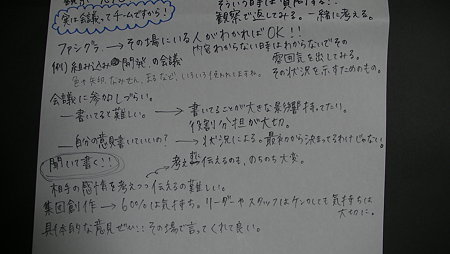 実は会議ってチームですから!
そういう時は質問する!
観察で返してみる。一緒に考える。
ファシグラ → その場にいる人がわかればOK!!
内容わからない時はわからないでその
雰囲気を出してみる。
その状況を示すためのもの。
例)組み込み 開発の会議
色や矢印、なみせん、まるなど、いろいろ使えたんですね。
会議に参加しづらい。
―書いてると難しい。→ 書いてることが大きな影響持ってたり。
役割分担が大切。
―自分の意見書いていいの?→ 状況による。最初から決まってるわけじゃない。
聞いて書く!!
考え 伝えるのも、のちのち大変。
相手の感情を考えつつ伝えるの難しい。
集団創作 → 6割は気持ち。リーダーやスタッフはケンカしてて気持ちは
大切に。
具体的な意見ぜひ!!その場で言ってくれて良い。